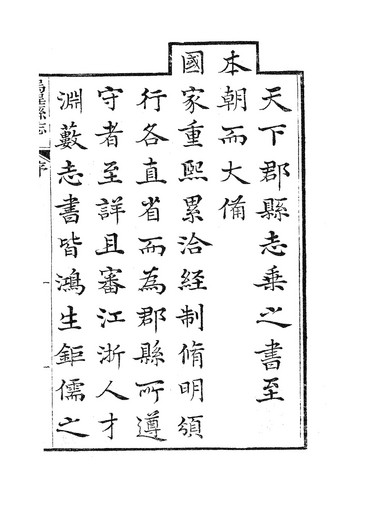 天下郡縣志乗之書至
本朝而大俻
國家重熙累洽經制脩明頒
行各直省而為郡縣所遵
守者至詳且審江浙人才
淵藪志書皆鴻生鉅儒之
縣志
序